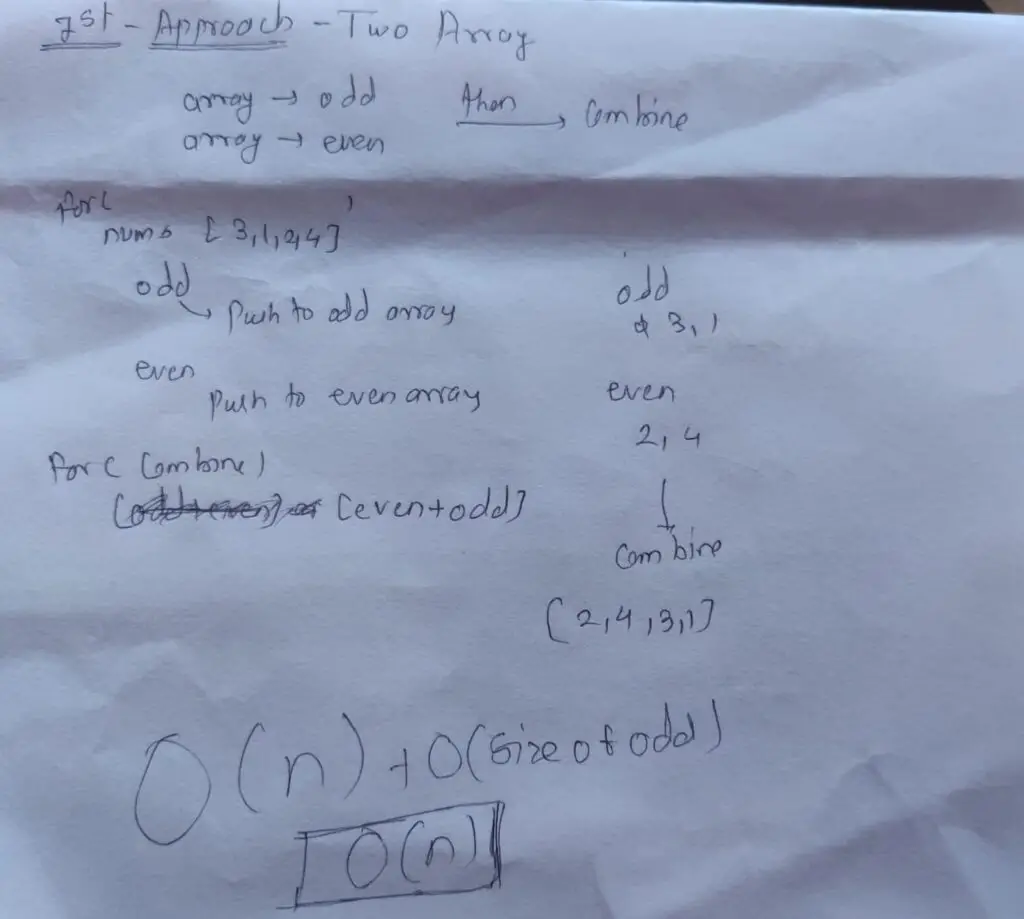 1st - Approach - Two Array
array → odd then → Combine
array → even
for(
nums [3,1,2,4]
odd
↳ Push to odd array
even
Push to even array
for( Combine)
[even+odd]
odd
3, 1
even
2, 4
↓
Combine
[2,4,3,1]
O(n) + O(size of odd)
O(n)